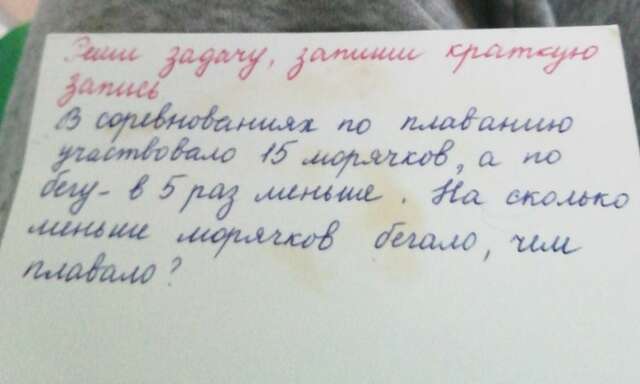 Реши задачу, запиши краткую
запись
В соревнованиях по плаванию
участвовало 15 морячков, а по
бегу - в 5 раз меньше. На сколько
меньше морячков бегало, чем
плавало?